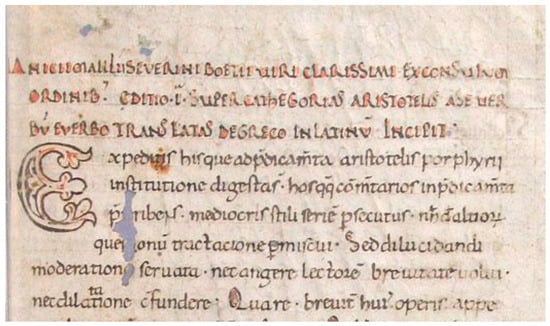 ANICII MALLII SEVERINI BOETII VIRI CLARISSIMI EX CONSULUM
ORDINIB; EDITIO .I. SUPER CATHEGORIAS ARISTOTELIS A SE VER
BŪ E VERBO TRANSLATAS DE GRECO IN LATINŪ. INCIPIT.
Expeditis hisque ad p̄dicam̄ta aristotelis porphyrii
institutione digesta s̄. hos q̄q; com̄tarios in p̄dicam̄ta
mediocris stili seriē p̄secutus.
tractacione p̄miscui. Sed dilucidandi
moderatione servata. nec angere lectorē brevitate volui.
nec dilatatione c̄fundere. Quare. brevit̄ hui' operis appe